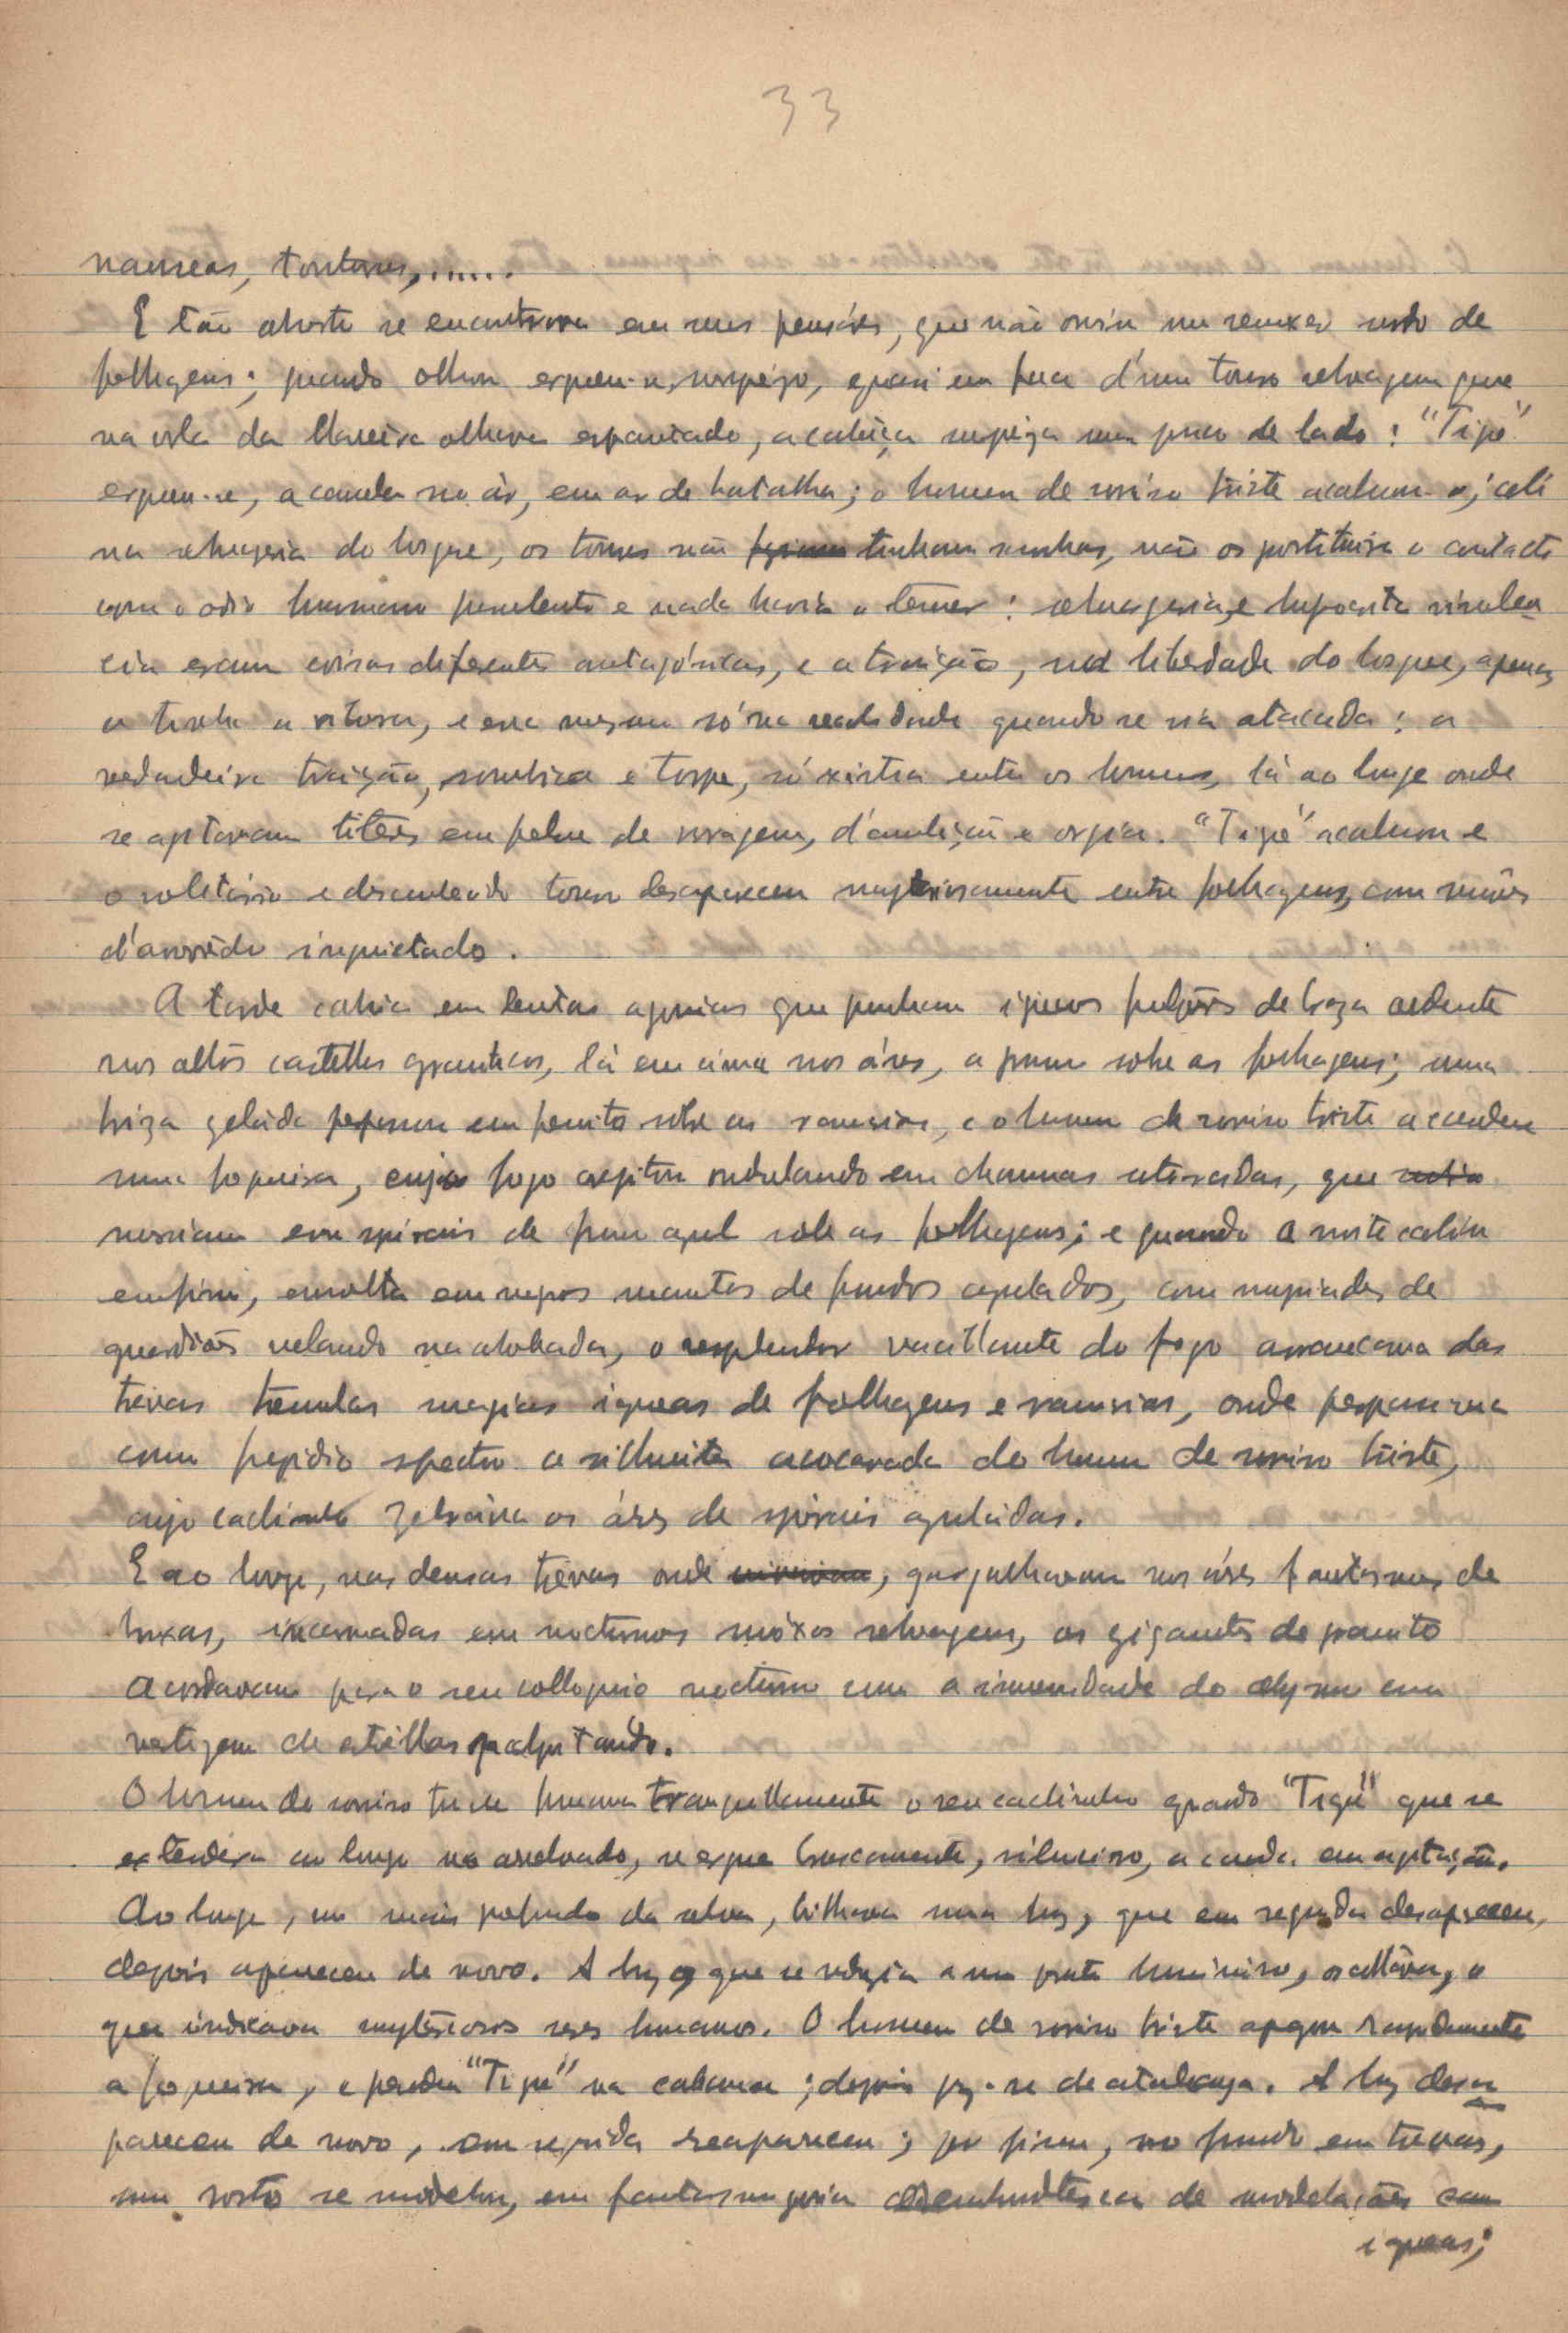 33
nauseas, tonturas, ......
E tão absorto se encontrava em seus pensares, que não ouviu um remexer surdo de
folhagens; quando olhou ergueu-se, surpêzo, quasi em face d'um touro selvagem que
na orla da clareira olhava espantado, a cabeça um pouco de lado: "Tigre"
ergueu-se, a cauda no ár, em ar de batalha; o homem de sorriso triste acalmou-o; ali
na selvageria do bosque, os touros não tinham manhas, não os prostituira o contacto
com o odio humano purulento e nada havia a temer: selvageria e hypocrita virulen
cia eram coisas diferentes antagónicas, e a traição, na liberdade do bosque, apenas
a tinha a vibora, e essa mesma só na realidade quando se via atacada: a
verdadeira traição, sombria e torpe, só existia entre os homens, lá ao longe onde
se agitavam titéres em febre de voragem, d'ambição e orgia. "Tigre" acalmou e
o solitário e desconhecido touro desapareceu mysteriosamente entre folhagens, com
d'arvorêdo inquietado.
A tarde cahia em lentas agonias que punham igneos fulgôres de braza ardente
nos altos castellos graniticos, lá em cima nos áres, a prumo sobre as folhagens; uma
briza gelada perpassou em sobre as ramarias, e o homem de sorriso triste accendeu
uma fogueira, cujo fogo crepitou ondulando em chammas, que
em spirais de fumo azul sobre as folhagens; e quando a noite cahiu
emfim, envolta em negros mantos de fundos azulados, com myriades de
guardiões velando na abobada, o resplendor vacillante do fogo arrancava das
trevas tremulas magias igneas de folhagens e ramarias, onde perpassava
como fugidio spectro a silhueta acocorada do homem de sorriso triste,
cujo cachimbo zebráva os áres de spirais azuladas.
E ao longe, nas densas trévas onde, gargalhavam nos áres fantasmas de
bruxas, incarnadas em nocturnos móxos selvagens, os gigantes de granito
acordavam para o seu colloquio nocturno com a immensidade do abysmo em
vertigem de estrellas palpitando.
O homem do sorriso triste fumava tranquillamente o seu cachimbo quando "Tigre" que se
extendera ao longo no arrelvado, se ergue bruscamente, silencioso, a cauda em agitação.
Ao longe, no mais profundo da selva, brilhava uma luz, que em seguida desapareceu,
depois apareceu de novo. A luz, que se reduzia a um ponto luminoso, oscilláva, o
que indicava mystériosos seres humanos. O homem de sorriso triste apagou rapidamente
a fogueira, e prendeu "Tigre" na cabana; depois poz-se de atalaya. A luz desa
pareceu de novo, em seguida reapareceu; por fim, no fundo em trevas,
um rosto se modelou, em fantasmagoria de modelações
igneas;